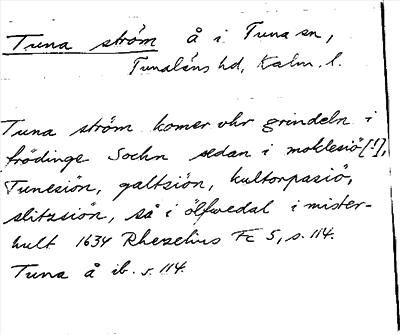 Tuna ström å i Tuna sn,
Tunaläns hd, Kalm. l.
Tuna ström komer vhr grindeln i
frödinge Sochn sedan i moklesiö[!],
Tunesiön, galtsiön, kultorpasiö,
slitzsiön, så i ölfwedal i mister-
hult 1634 Rhezelius Fc 5, s. 114.
Tuna å ib. s. 114.